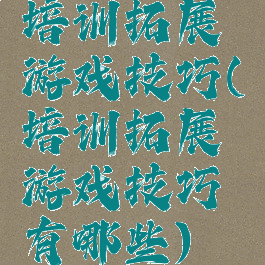 培训拓展
游戏技巧(
培训拓展
游戏技巧
有哪些)